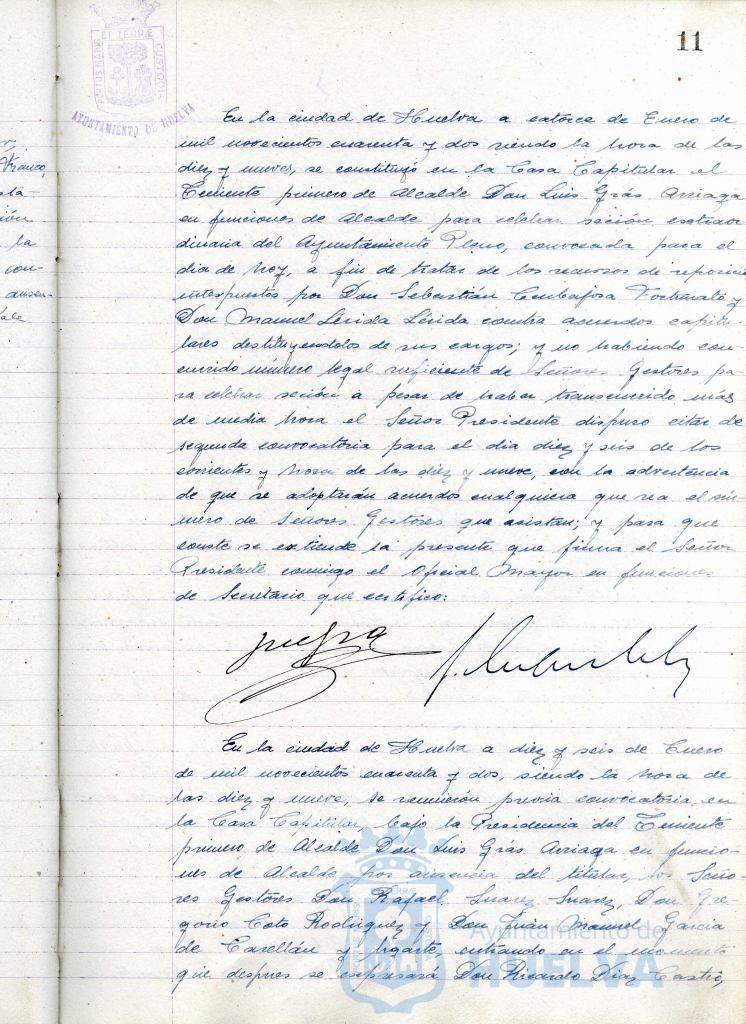 11
PORTUS MARIS ET TERRÆ CUSTODIA
AYUNTAMIENTO DE HUELVA
Franco,
ión
la
con-
ausen-
En la ciudad de Huelva a catorce de Enero de
mil novecientos cuarenta y dos siendo la hora de las
diez y nueve, se constituyó en la Casa Capitular el
Teniente primero de Alcalde Don Luis Grás Arriaga
en funciones de Alcalde para celebrar seción extraor
dinaria del Ayuntamiento Pleno, convocada para el
dia de hoy, a fin de tratar de los recursos de reposició
interpuestos por Don Sebastián Cumbajosa Fortunato y
Don Manuel Lérida Lérida contra acuerdos capitu-
lares destituyendolos de sus cargos; y no habiendo con-
currido número legal suficiente de Señores Gestores pa-
ra celebrar seción a pesar de haber transcurrido más
de media hora el Señor Presidente dispuso citar de
segunda convocatoria para el dia diez y seis de los
corrientes y hora de las diez y nueve, con la advertencia
de que se adoptarán acuerdos cualquiera que sea el nú-
mero de Señores Gestores que asistan; y para que
conste se extiende la presente que firma el Señor
Presidente conmigo el Oficial Mayor en funciones
de Secretario que certifico:
En la ciudad de Huelva a diez y seis de Enero
de mil novecientos cuarenta y dos, siendo la hora de
las diez y nueve, se reunieron previa convocatoria en
la Casa Capitular, bajo la Presidencia del Teniente
primero de Alcalde Don Luis Grás Arriaga en funcio-
nes de Alcalde por ausencia del titular, los Seño-
res Gestores Don Rafael Suarez Suarez, Don Gre-
gorio Coto Rodriguez y Don Juan Manuel Garcia
de Caxellán y Ugarte, entrando en el momento
que despues se expresará Don Ricardo Diaz Castro,
Ayuntamiento de
HUELVA